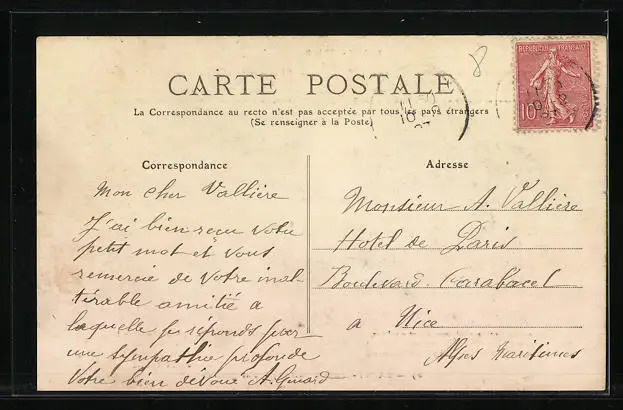 CARTE POSTALE
La Correspondance au recto n'est pas acceptée par tous les pays étrangers
(Se renseigner à la Poste)
REPUBLIQUE FRANÇAISE
10
8
Correspondance
Mon cher Vallière
J'ai bien reçu votre
petit mot et vous
remercie de votre inal-
térable amitié a
laquelle je réponds par
une sympathie profonde
Votre bien dévoué A.
Adresse
Monsieur A. Vallière
Hotel de Paris
Boulevard Carabacel
a Nice
Alpes Maritimes